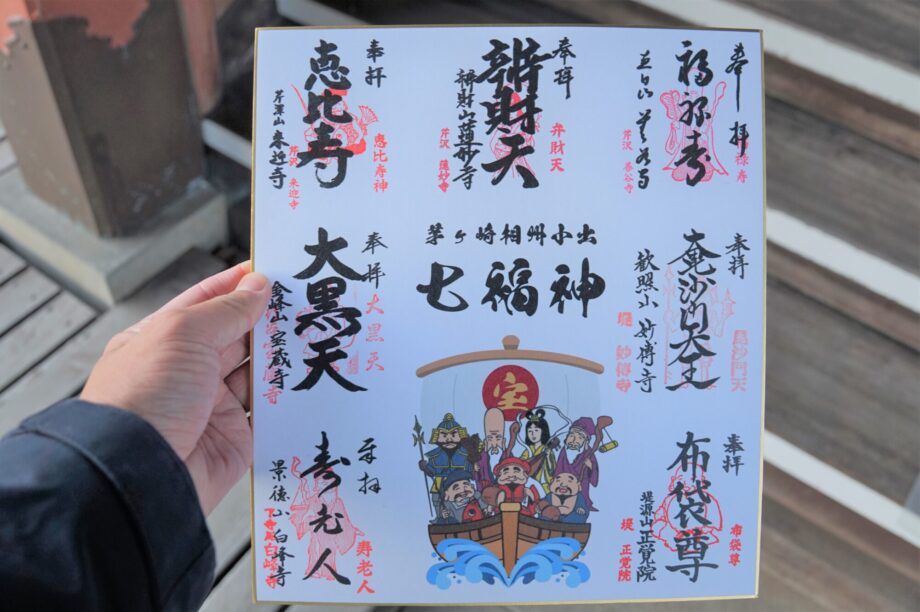 奉拝
福禄寿
禄寿
芹沢 善谷寺
奉拝
辨財天
弁財天
辨財山蓮妙寺
芹沢 蓮妙寺
奉拝
恵比寿
恵比寿神
芹澤山来迎寺
芹沢 来迎寺
茅ヶ崎相州小出
七福神
宝
奉拝
毘沙門天王
毘沙門天
妙傳寺
堤 妙傳寺
奉拝
大黒天
大黒天
宝蔵寺
奉拝
布袋尊
布袋尊
正覚院
堤 正覚院
奉拝
寿老人
寿老人
景徳山白峰寺
白峰寺